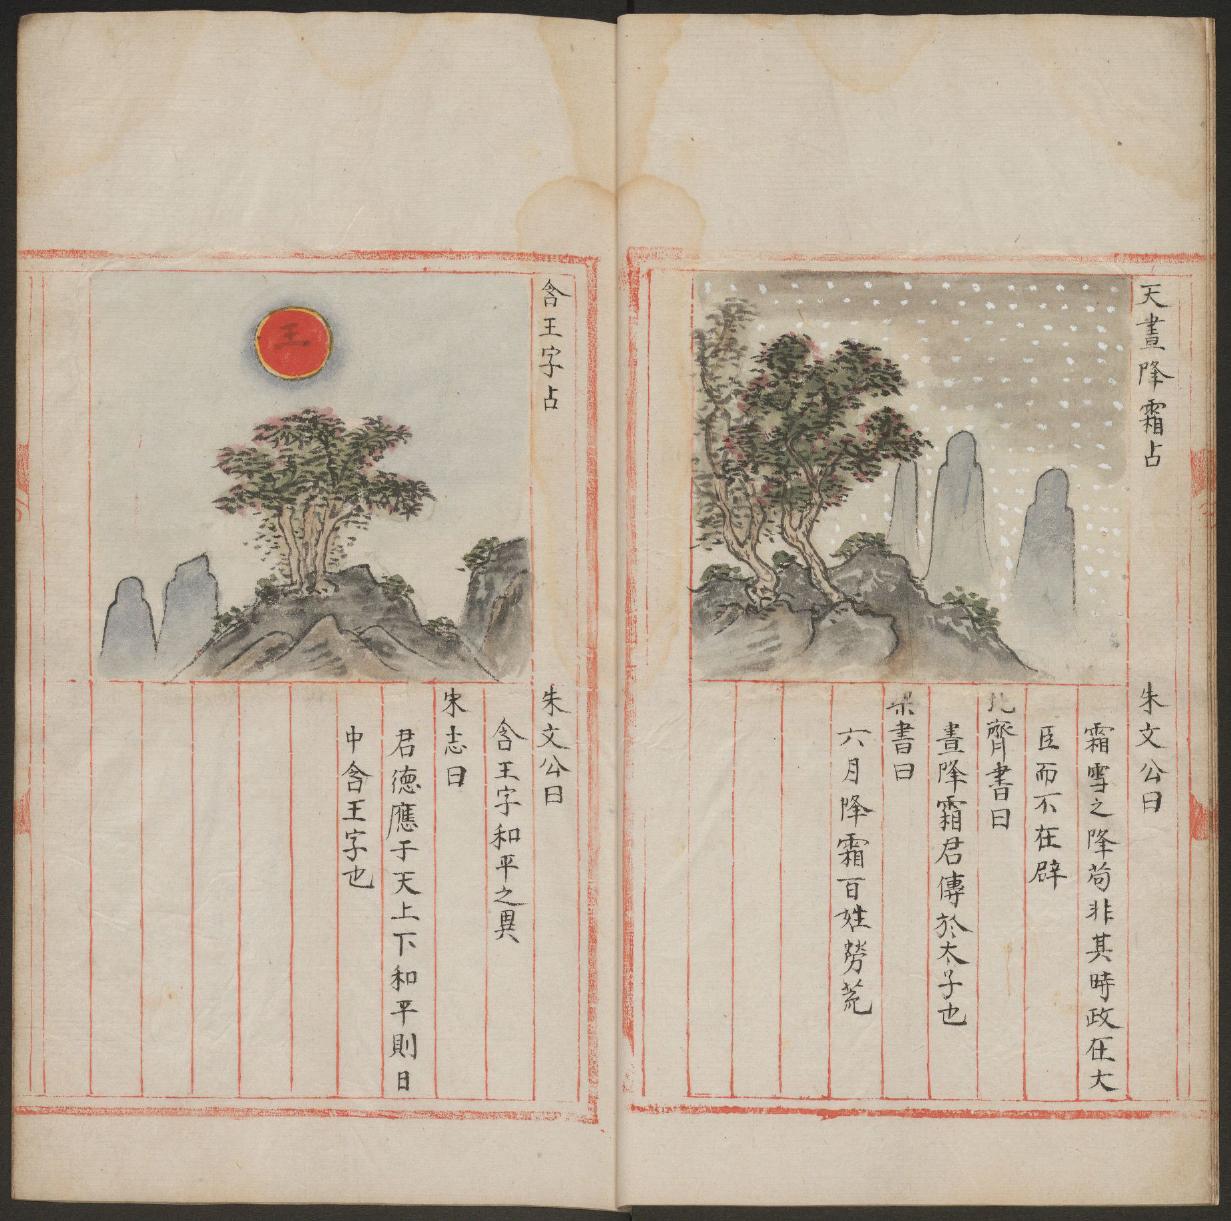 天晝降霜占
朱文公曰
霜雪之降苟非其時政在大
臣而不在辟
北齊書曰
晝降霜君傳於太子也
書曰
六月降霜百姓勞荒
含王字占
王
朱文公曰
含王字和平之異
宋志曰
君德應于天上下和平則日
中含王字也